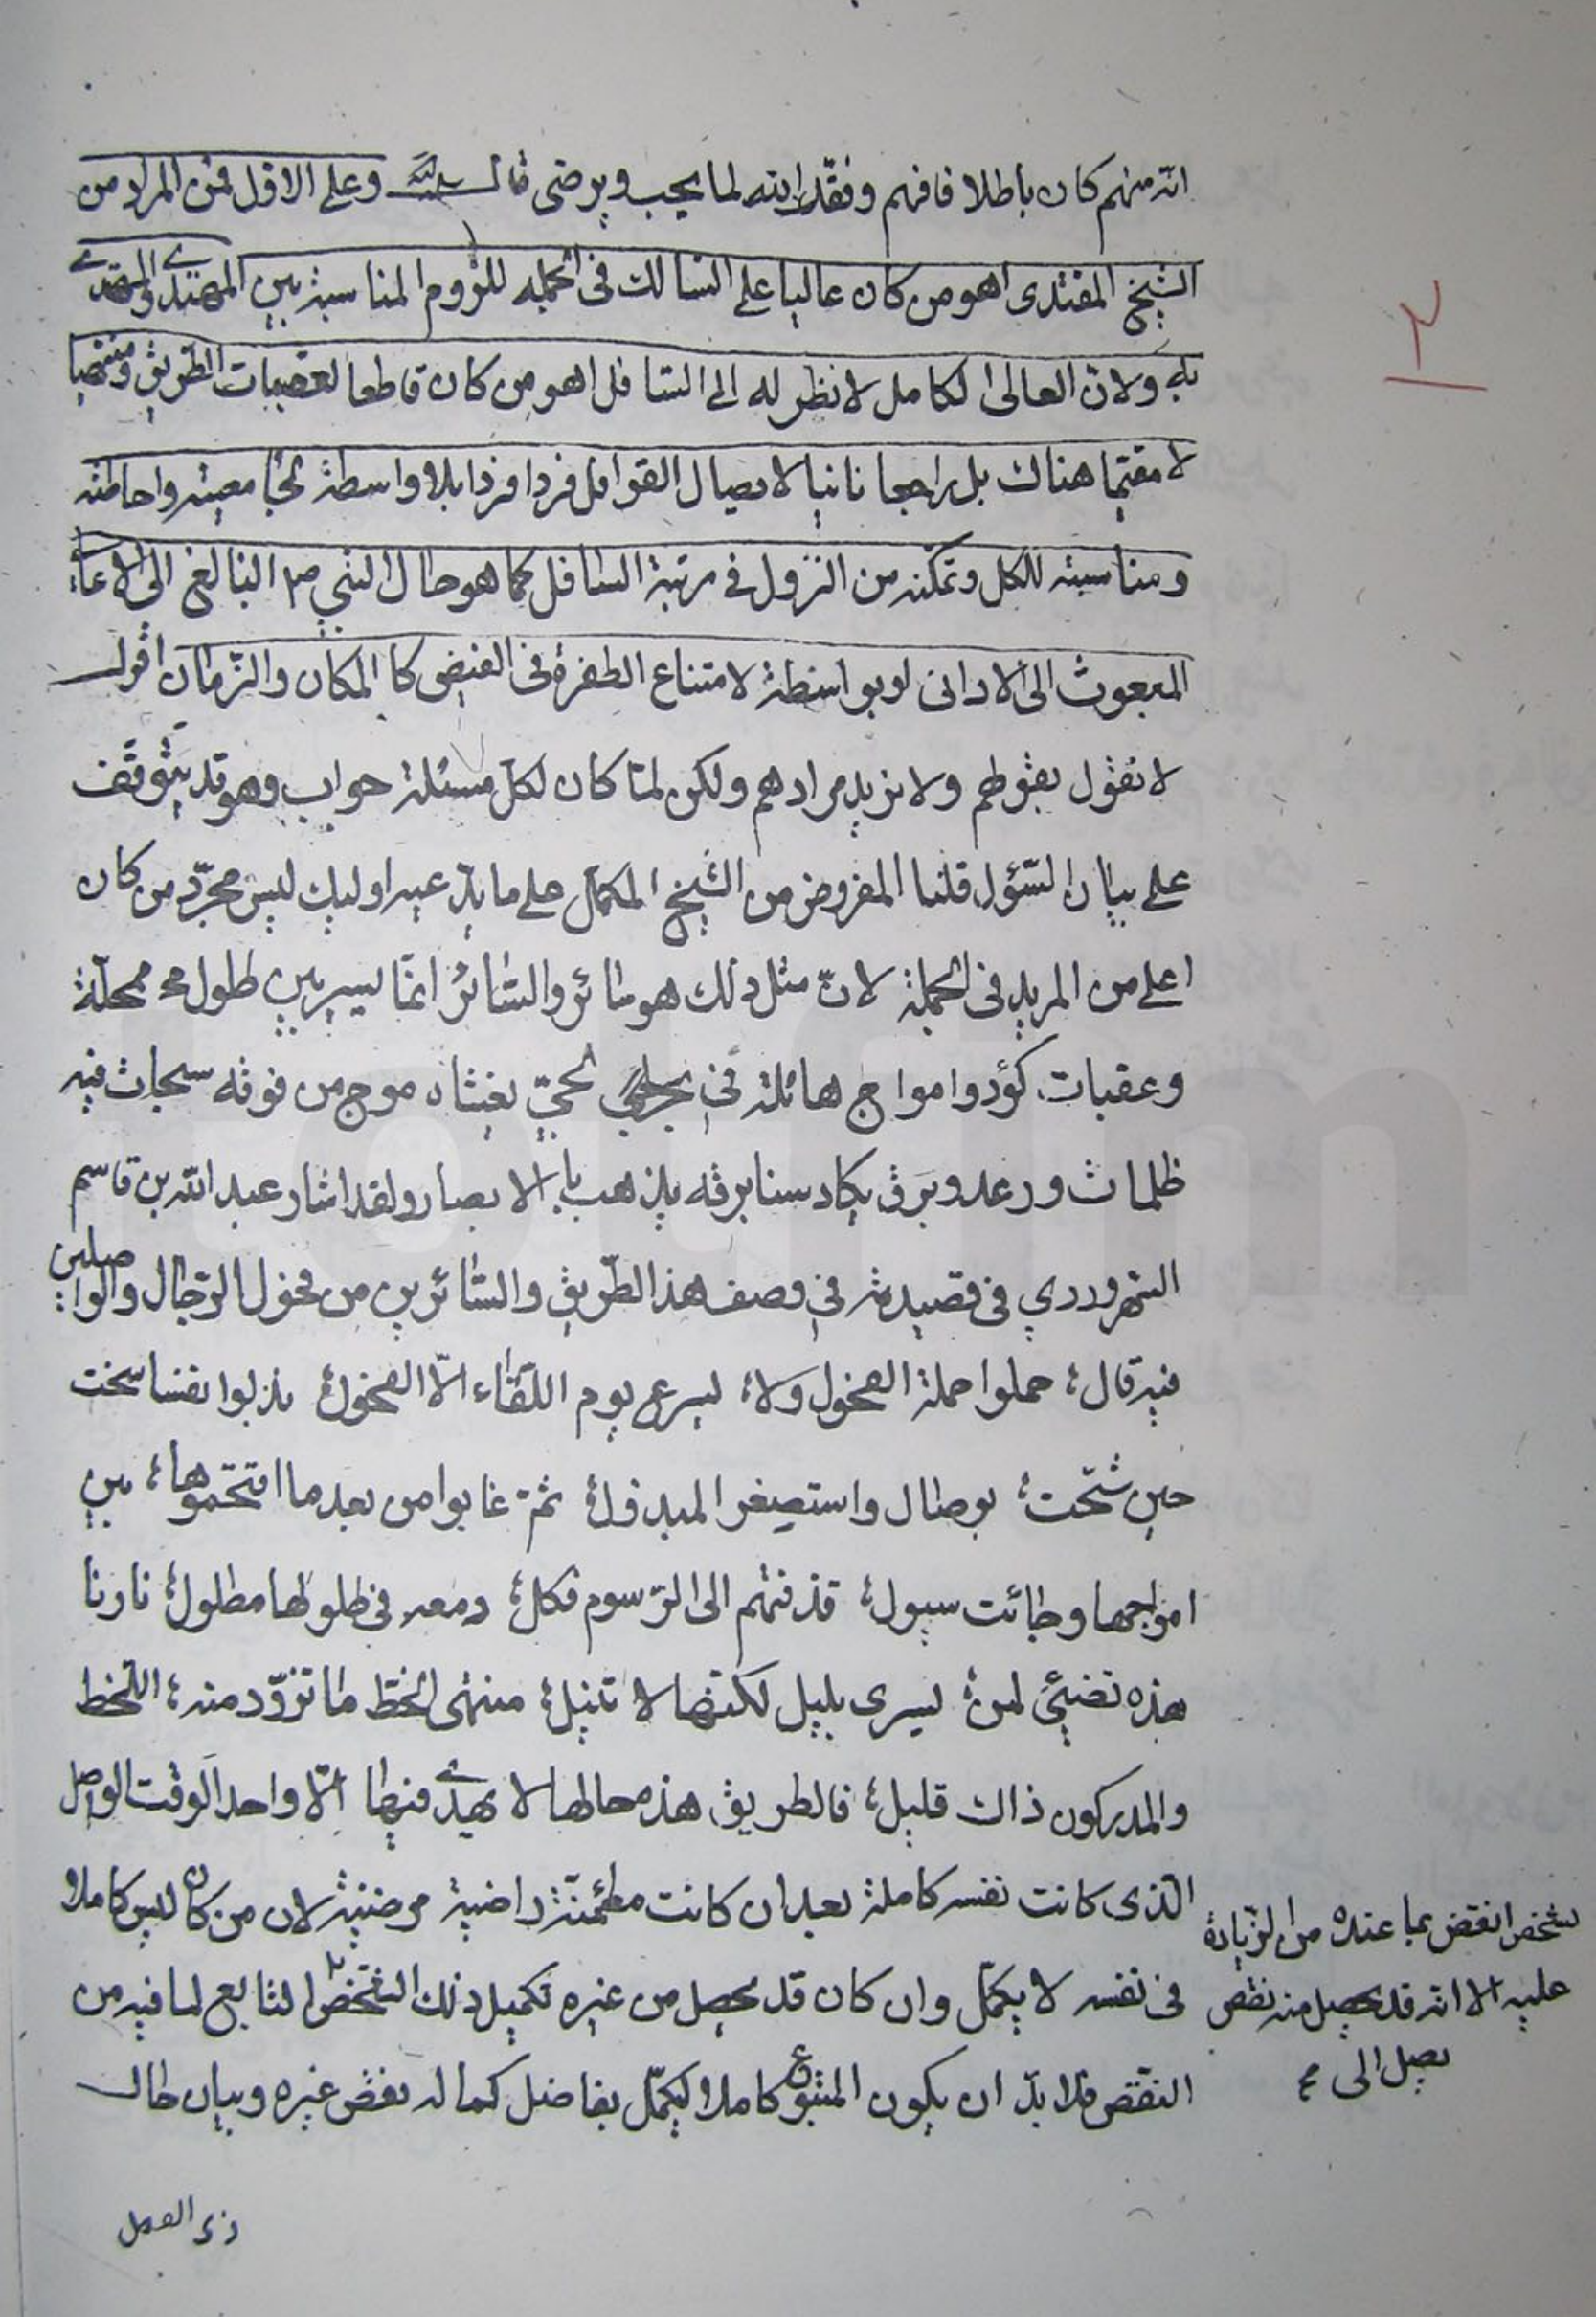 انه منهم كان باطلا فافهم وفقك الله لما يحب ويرضى قال سلمه الله وعلى الاول فمن المراد من
الشيخ المقتدى اهو من كان عاليا على السالك في الجملة للزوم المناسبة بين المهتدي والمهتدى
به ولان العالى الكامل لا نظر له الى السافل اهو من كان قاطعا لعقبات الطريق ومنتهيا
لا مقيما هناك بل راجعا ثانيا لايصال القوافل فردا فردا بلا واسطة لجامعيته واحاطته
ومناسبته للكل وتمكنه من النزول في مرتبة السافل كما هو حال النبي ص البالغ الى الاعالى
المبعوث الى الادانى او بواسطة لامتناع الطفرة في الفيض كالمكان والزمان اقول
لا نقول بقولهم ولا نريد مرادهم ولكن لما كان لكل مسئلة جواب وهو قد يتوقف
على بيان السؤل قلنا المفروض من الشيخ المكمل على ما يدعيه اوليك ليس مجرد من كان
اعلى من المريد في الجملة لان مثل ذلك هو سائر والسائر انما يسير بين طلول محملة
وعقبات كؤد وامواج هائلة في بحر لجي يغشاه موج من فوقه سحاب فيه
ظلمات ورعد وبرق يكاد سنا برقه يذهب بالابصار ولقد اشار عبد الله بن قاسم
السهروردي في قصيدته في وصف هذا الطريق والسائرين من فحول الرجال والواصلين
فيه قال ؛ حملوا حملة الفحول ولا ؛ يسرع يوم اللقاء الا الفحول ؛ بذلوا نفسا سخت
حين شحت ؛ بوصال واستصغر المبذول ؛ ثم غابوا من بعد ما اقتحموها ؛ بين
امواجها وجائت سيول ؛ قذفتهم الى الرسوم فكل ؛ دمعه في طلولها مطلول ؛ نارنا
هذه تضيئ لمن ؛ يسرى بليل لكنها لا تنيل ؛ منتهى الحظ ما تزود منه ؛ اللحظ
والمدركون ذاك قليل ؛ فالطريق هذه حالها لا يهدي فيها الا واحد الوقت الواصل
الذى كانت نفسه كاملة بعد ان كانت مطمئنة راضية مرضية لان من كان ليس كاملا
في نفسه لا يكمل وان كان قد يحصل من غيره تكميل ذلك الشخص التابع لما فيه من
النقص فلا بد ان يكون المتبوع كاملا ليكمل بفاضل كماله نقص غيره وبيان حال
ذى الفصل
لشخص انقص بما عنده من الزيادة
عليه الا انه قد يحصل منه نقص
يصل الى
٢